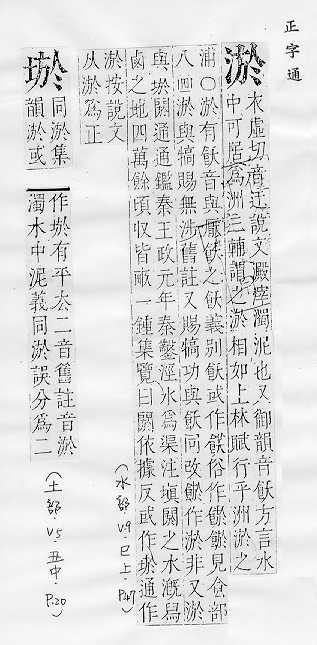 正字通
淤
衣虛切音迂說文澱滓濁泥也又御韻音飫方言水
中可居爲洲三輔謂之淤相如上林賦行乎洲淤之
浦〇淤有飫音與厭飫之飫義別飫或作 俗作 見食部
八四淤與犒賜無涉舊註又賜犒功與飫同改 作淤非又淤
與 閼通通鑑秦王政元年秦鑿涇水爲渠注塡閼之水溉舄
鹵之地四萬餘頃収皆畝一鍾集覽曰閼依據反或作 通作
淤按說文
从淤爲正
(水部.V9.巳上.P.47)
同淤集
韻淤或
作 有平去二音舊註音淤
濁水中泥義同淤誤分爲二
(土部.V5.丑中.P.20)